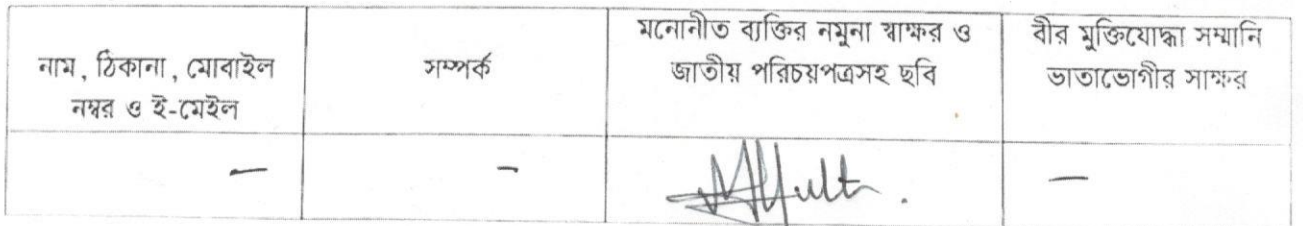 নাম, ঠিকানা, মোবাইল
নম্বর ও ই-মেইল
সম্পর্ক
মনোনীত ব্যক্তির নমুনা স্বাক্ষর ও
জাতীয় পরিচয়পত্রসহ ছবি
বীর মুক্তিযোদ্ধা সম্মানি
ভাতাভোগীর সাক্ষর
— — —